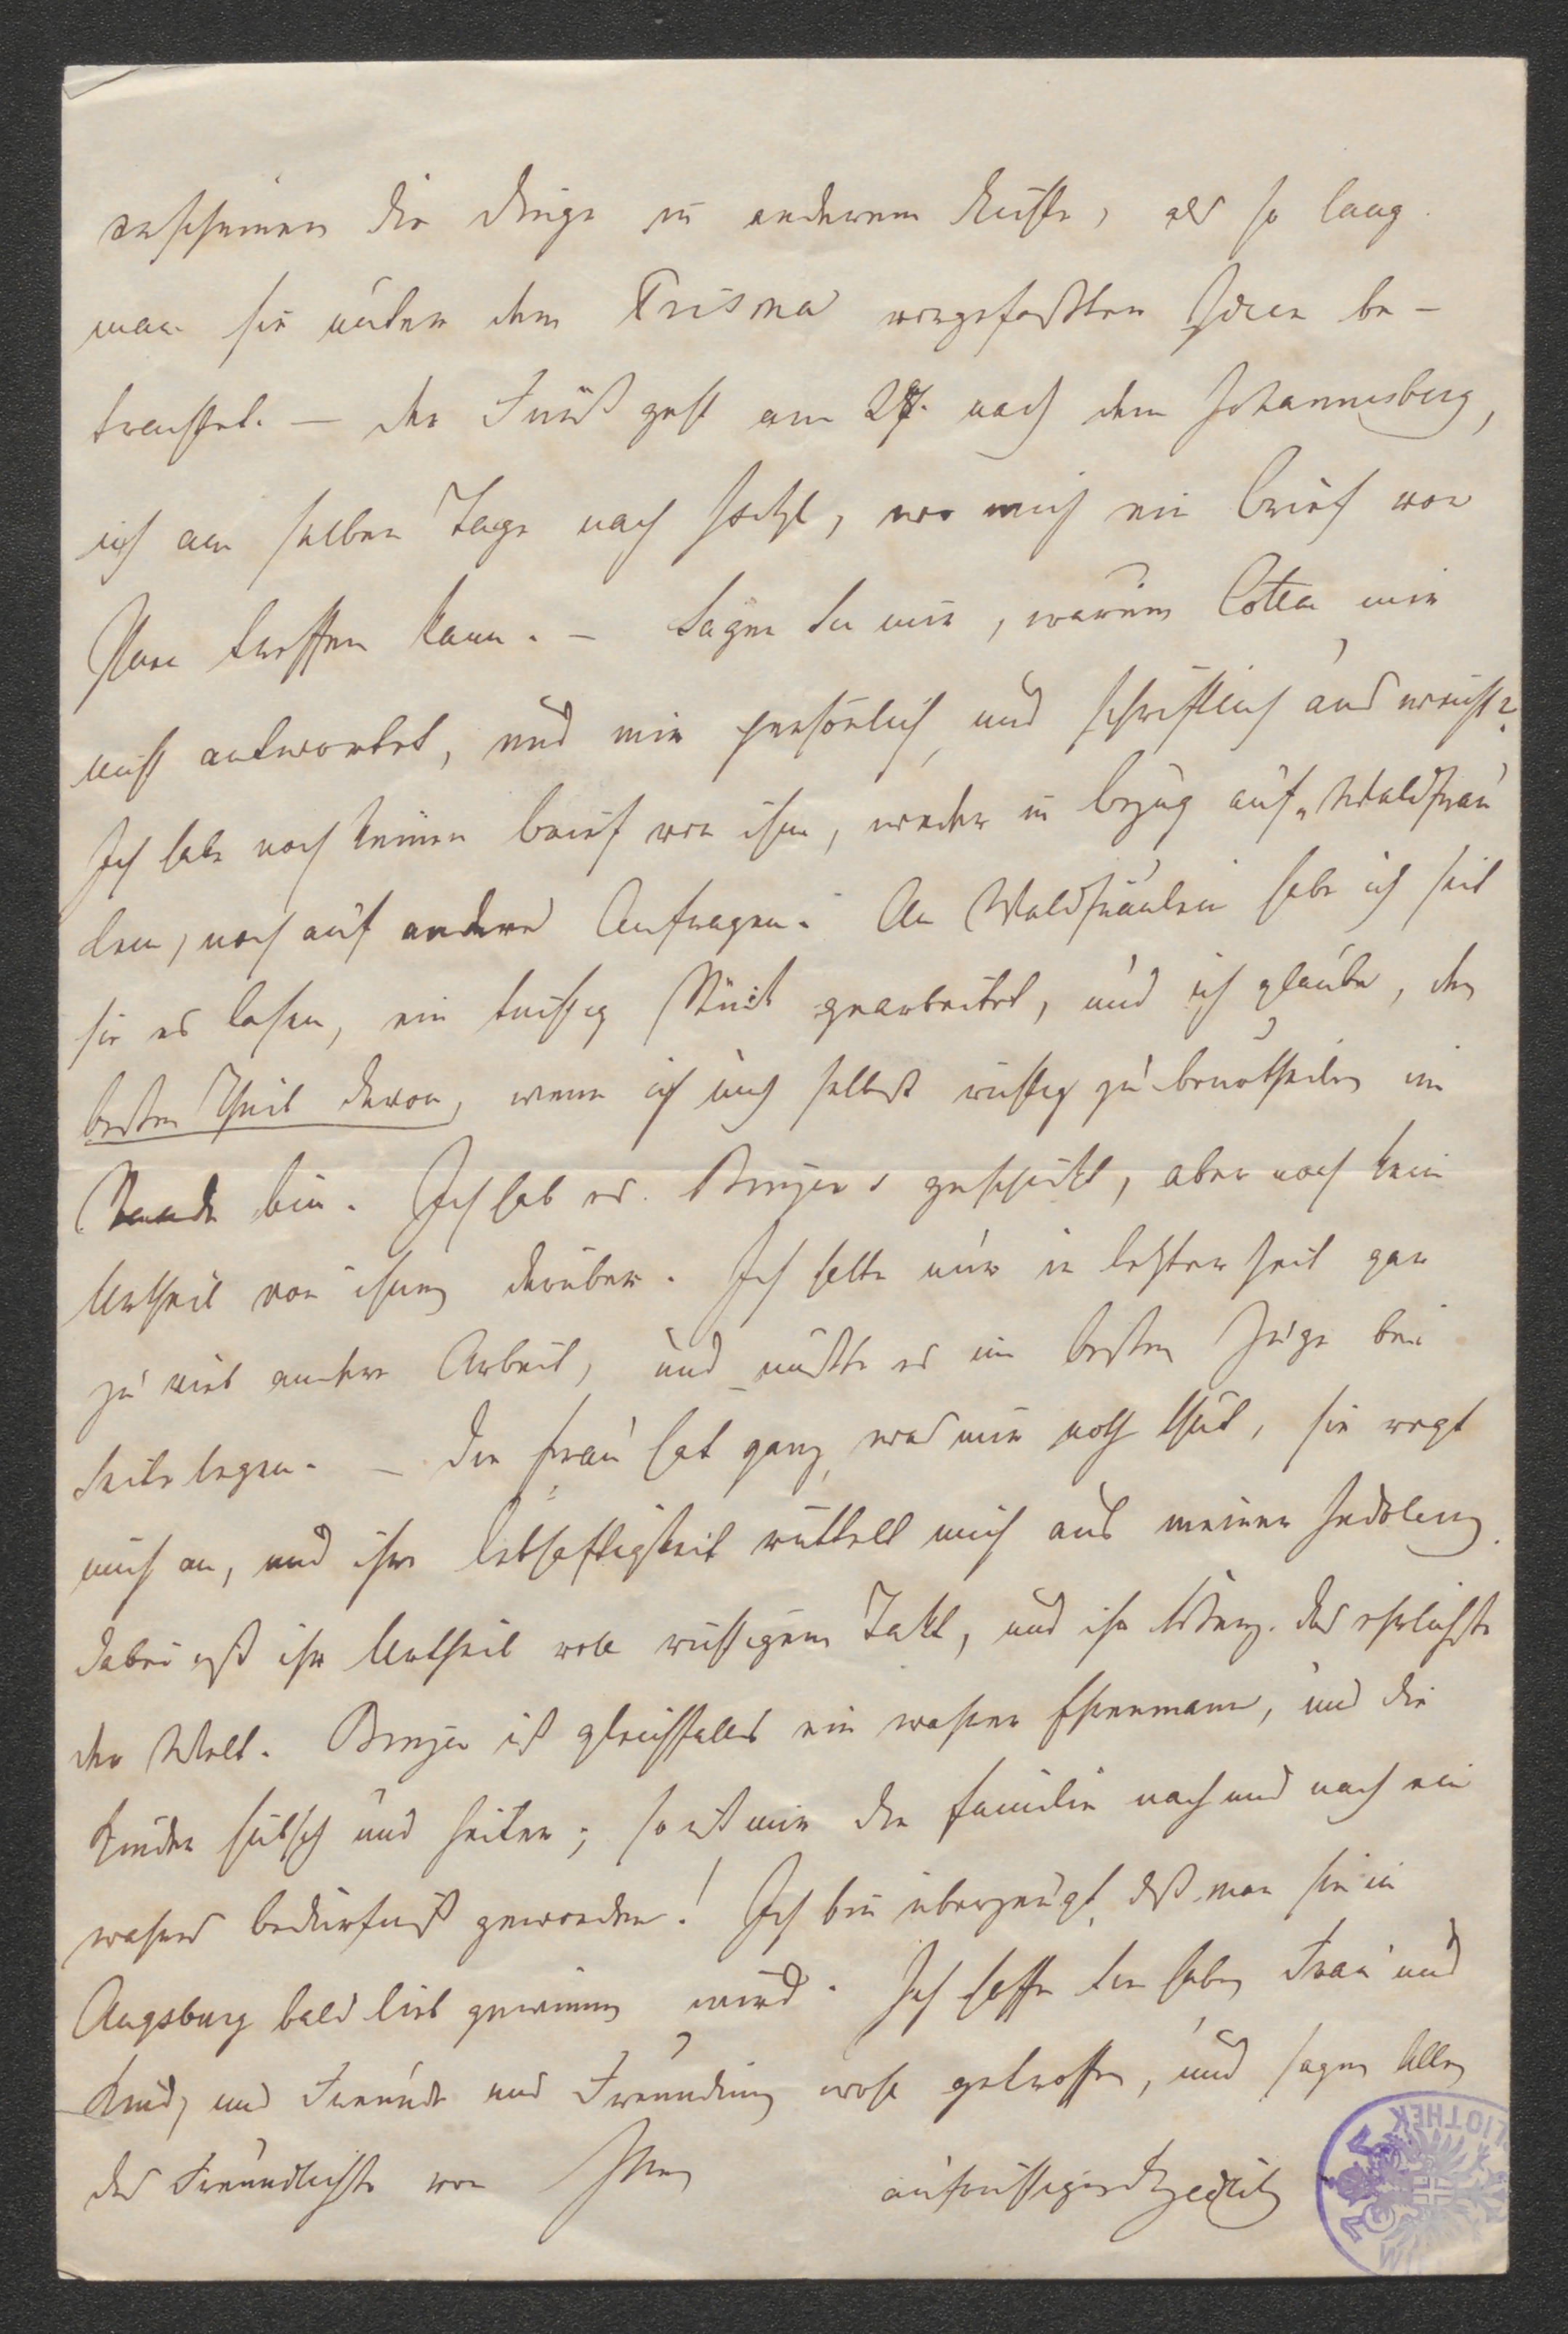 erscheinen die Dinge in anderem Lichte, als so lang
man sie unter dem Prisma vorgefaßten Ideen be-
trachtet. — Der Fürst geht am 27. nach dem Johannisberg,
ich am selben Tage nach Ischl, wo mich ein Brief von
Ihnen treffen kann. — Sagen Sie mir, warum Cotta mir
nicht antwortet, und mir persönlich und schriftlich ausweicht?
Ich habe noch keinen Brief von ihm, weder in Bezug auf „Waldfräu
lein, noch auf andere Anfragen. An Waldfräulein habe ich seit
Sie es lasen, ein tüchtig Stück gearbeitet, und ich glaube, den
besten Theil davon, wenn ich mich selbst richtig zu beurtheilen im
Stande bin. Ich hab es geschickt, aber noch kein
Urtheil von ihnen darüber. Ich hatte nur in letzter Zeit gar
zu viel andere Arbeit, und mußte es im besten Zuge bei
Seite legen. — Die Frau hat ganz was mir noth thut, sie regt
mich an, und ihre Lebhaftigkeit rüttelt mich aus meiner Indolenz.
Dabei ist ihr Urtheil voll richtigem Takt, und ihr Herz das ehrlichste
der Welt. ist gleichfalls ein wahrer Ehrenmann, und die
Kinder hübsch und heiter; so ist mir die Familie nach und nach ein
wahres Bedürfniß geworden! Ich bin überzeugt, daß man sie in
Augsburg bald lieb gewinnen wird. Ich hoffe Sie haben Frau und
Kind, und Freunde und Freundinen wohl getroffen, und sagen Allen
das Freundlichste von Ihrem aufrichtigen Zedlitz